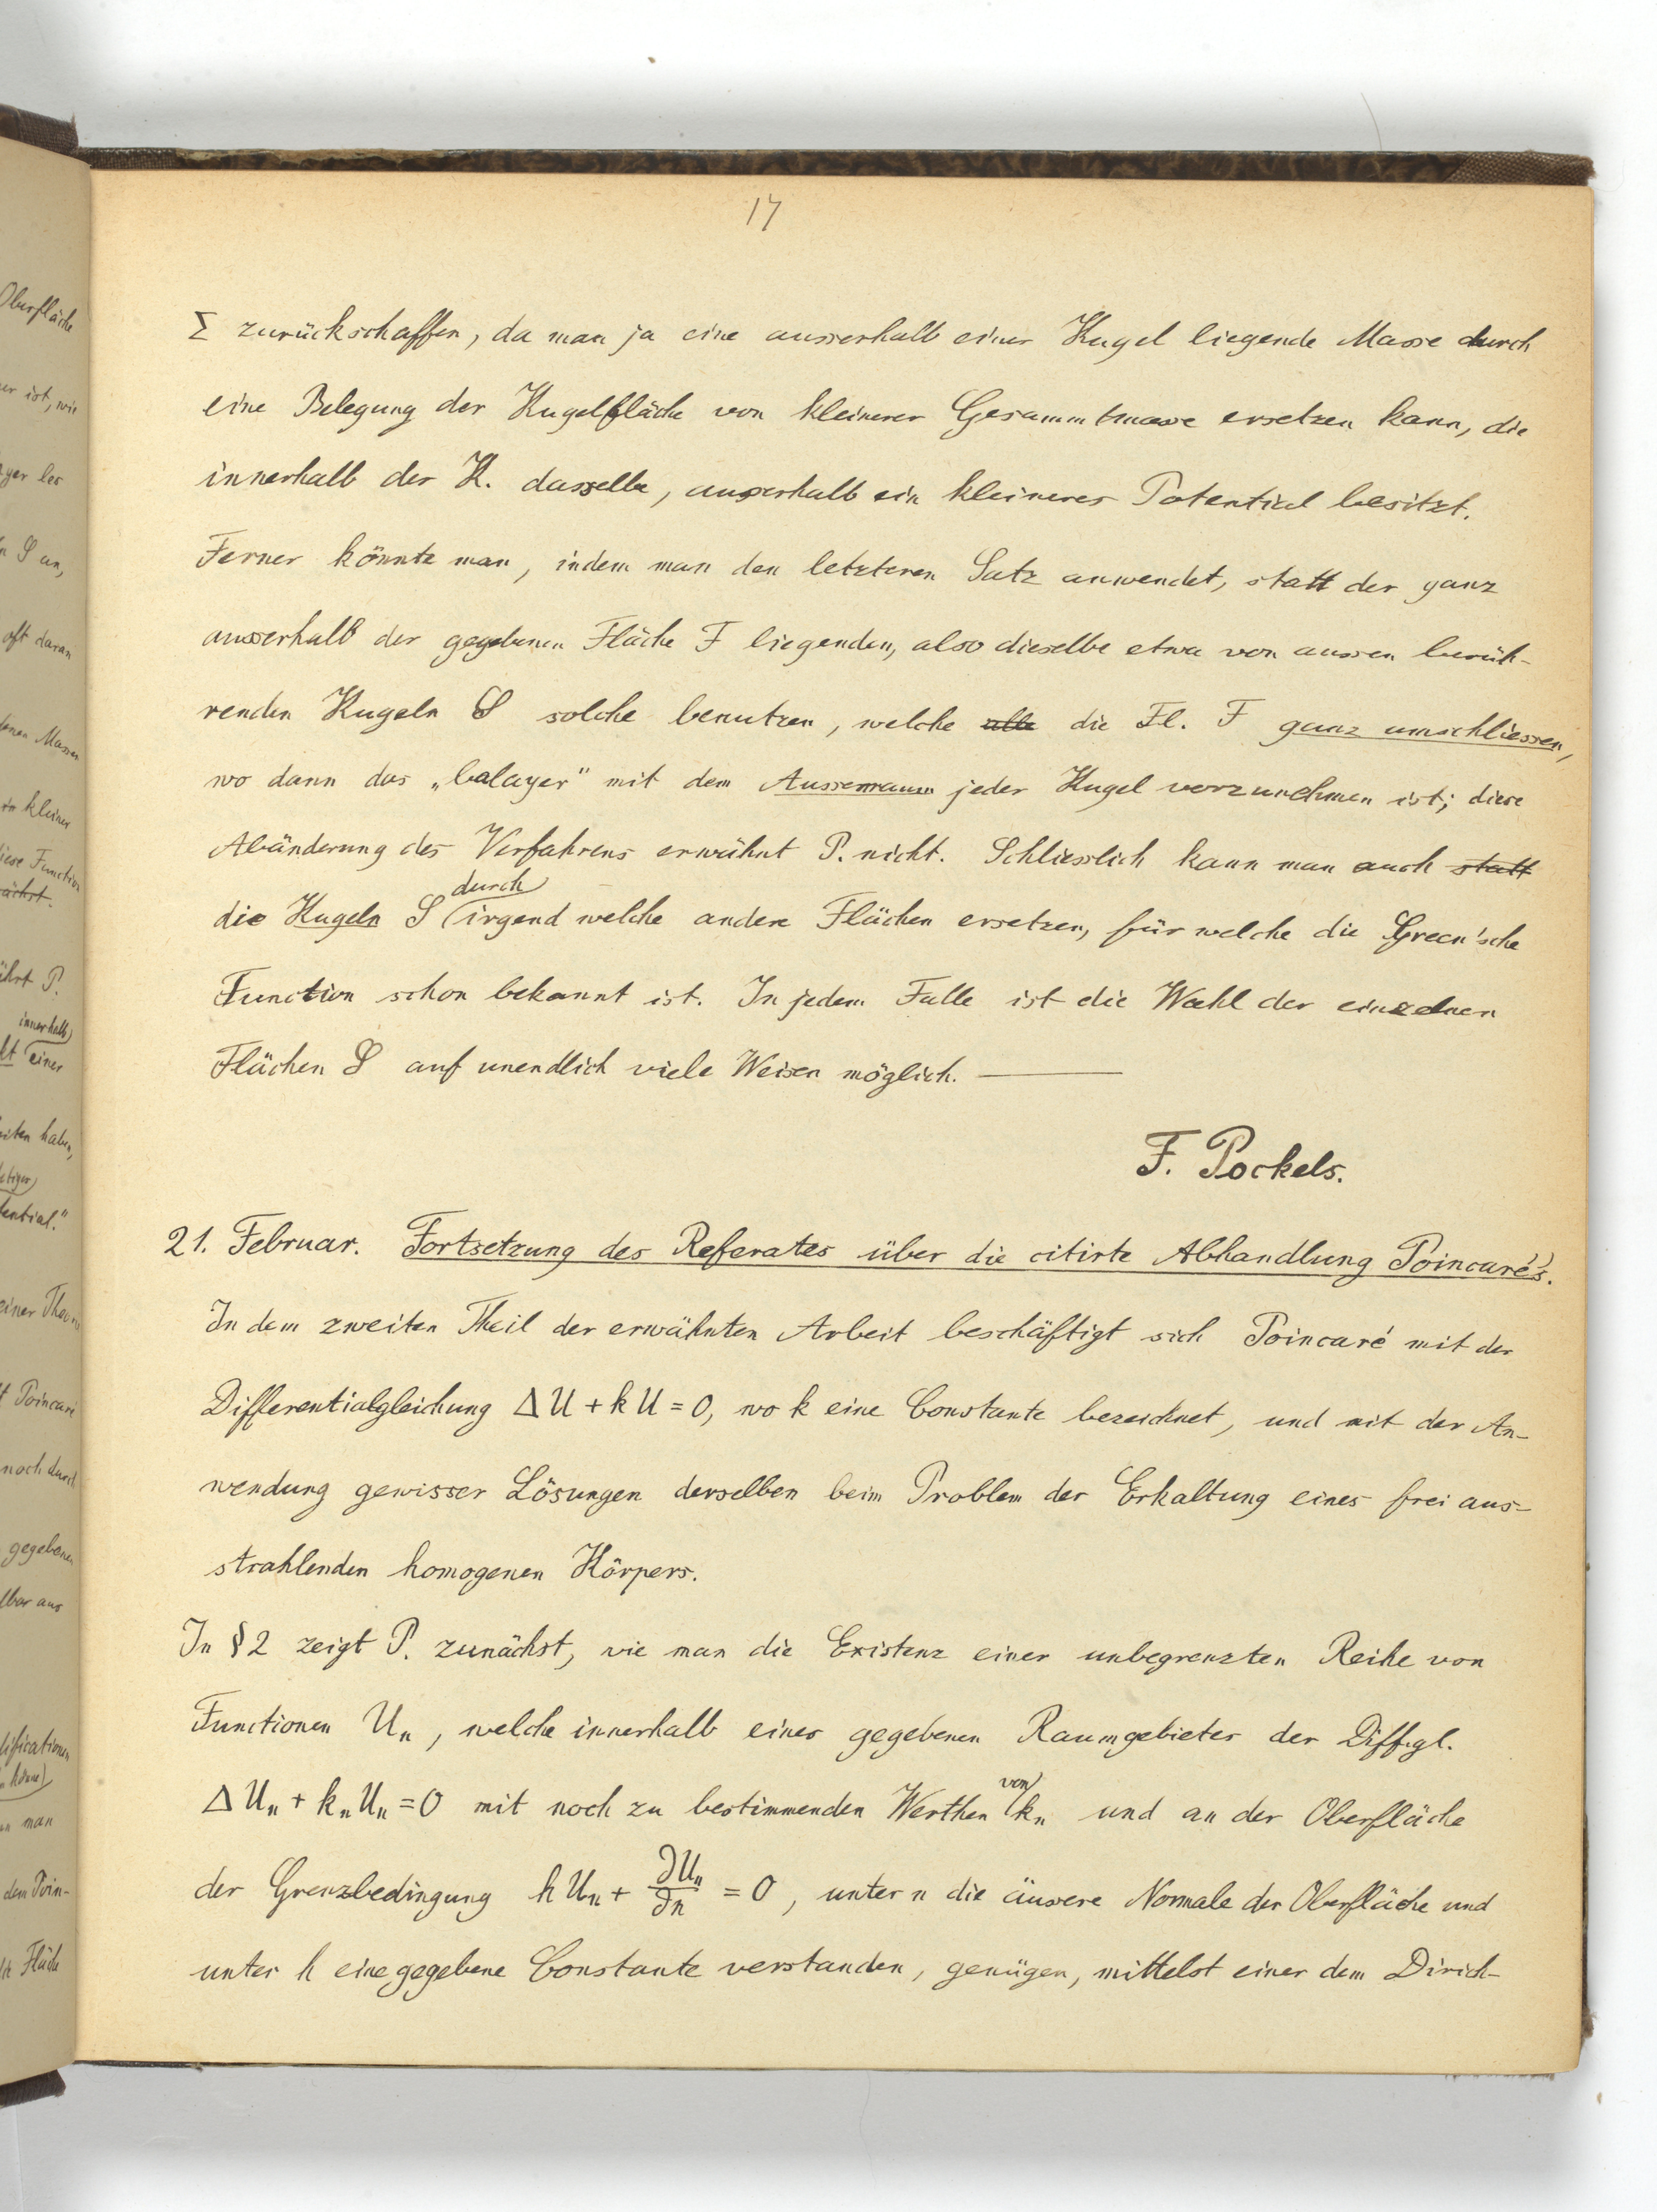 17
Σ zurückschaffen, da man ja eine ausserhalb einer Kugel liegende Masse durch
eine Belegung der Kugelfläche von kleinerer Gesammtmasse ersetzen kann, die
innerhalb der K. dasselbe, ausserhalb ein kleineres Potential besitzt.
Ferner könnte man, indem man den letzteren Satz anwendet, statt der ganz
ausserhalb der gegebenen Fläche F liegenden, also dieselbe etwa von aussen berüh-
renden Kugeln S solche benutzen, welche alle die Fl. F ganz umschliessen,
wo dann das „balayer" mit dem Aussenraum jeder Kugel vorzunehmen ist; diese
Abänderung des Verfahrens erwähnt P. nicht. Schliesslich kann man auch statt
die Kugeln S durch irgend welche andere Flächen ersetzen, für welche die Green'sche
Function schon bekannt ist. In jedem Falle ist die Wahl der einzelnen
Flächen S auf unendlich viele Weisen möglich. —
F. Pockels.
21. Februar. Fortsetzung des Referates über die citirte Abhandlung Poincaré's.
In dem zweiten Theil der erwähnten Arbeit beschäftigt sich Poincaré mit der
Differentialgleichung ΔU + kU = 0, wo k eine Constante bezeichnet, und mit der An-
wendung gewisser Lösungen derselben beim Problem der Erkaltung eines frei aus-
strahlenden homogenen Körpers.
In § 2 zeigt P. zunächst, wie man die Existenz einer unbegrenzten Reihe von
Functionen Uₙ, welche innerhalb eines gegebenen Raumgebietes der Diff.gl.
ΔUₙ + kₙUₙ = 0 mit noch zu bestimmenden Werthen von kₙ und an der Oberfläche
der Grenzbedingung hUₙ + ∂Uₙ/∂n = 0, unter n die äussere Normale der Oberfläche und
unter h eine gegebene Constante verstanden, genügen, mittelst einer dem Dirich-